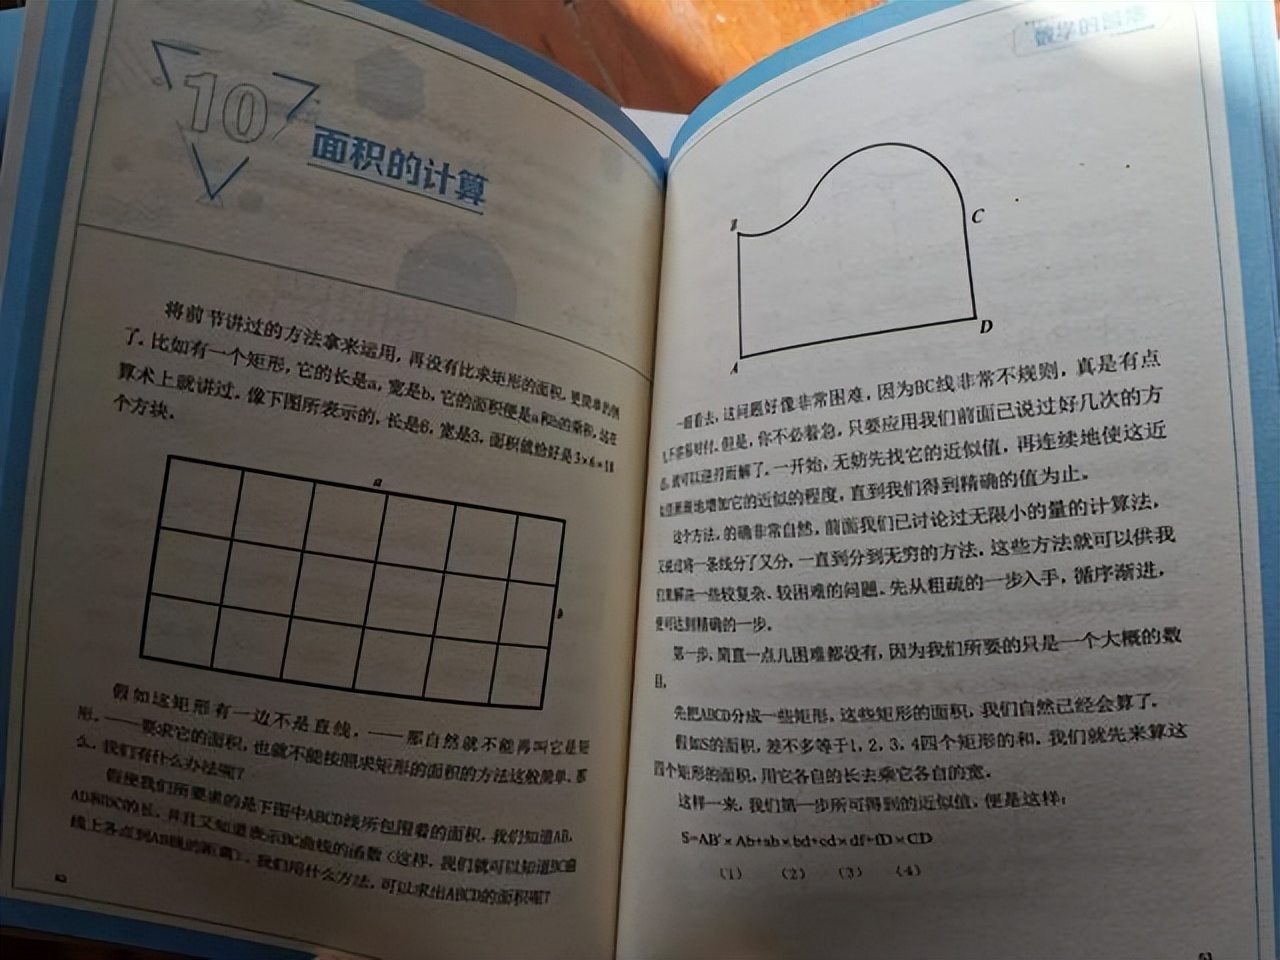 10
面积的计算
将前节讲过的方法拿来运用，再没有比求矩形的面积，更简单的例
了。比如有一个矩形，它的长是a，宽是b，它的面积便是a和b的乘积，
算术上就讲过。像下图所表示的，长是6，宽是3，面积就恰好是3×6=18
个方块。
a
b
假如这矩形有一边不是直线，——那自然就不能再叫它是矩
形，——要求它的面积，也就不能按照求矩形的面积的方法这般简单，那
么，我们有什么办法呢？
假使我们所要求的是下图中ABCD线所包围着的面积，我们知道AB，
AD和DC的长，并且又知道表示BC曲线的函数（这样，我们就可以知道BC曲
线上各点到AB线的距离），我们用什么方法，可以求出ABCD的面积呢？
数学的
B
C
A
D
一眼看去，这问题好像非常困难，因为BC线非常不规则，真是有点
儿不容易对付。但是，你不必着急，只要应用我们前面已说过好几次的方
法，就可以迎刃而解了。一开始，无妨先找它的近似值，再连续地使这近
似值渐渐地增加它的近似的程度，直到我们得到精确的值为止。
这个方法，的确非常自然，前面我们已讨论过无限小的量的计算法，
又说过将一条线分了又分，一直到分到无穷的方法，这些方法就可以供我
们来解决一些较复杂、较困难的问题。先从粗疏的一步入手，循序渐进，
便可达到精确的一步。
第一步，简直一点儿困难都没有，因为我们所要的只是一个大概的数
目。
先把ABCD分成一些矩形，这些矩形的面积，我们自然已经会算了。
假如S的面积，差不多等于1，2，3，4四个矩形的和，我们就先来算这
四个矩形的面积，用它各自的长去乘它各自的宽。
这样一来，我们第一步所可得到的近似值，便是这样：
S=AB′×Ab+ab×bd+cd×df+fD×CD
（1） （2） （3） （4）